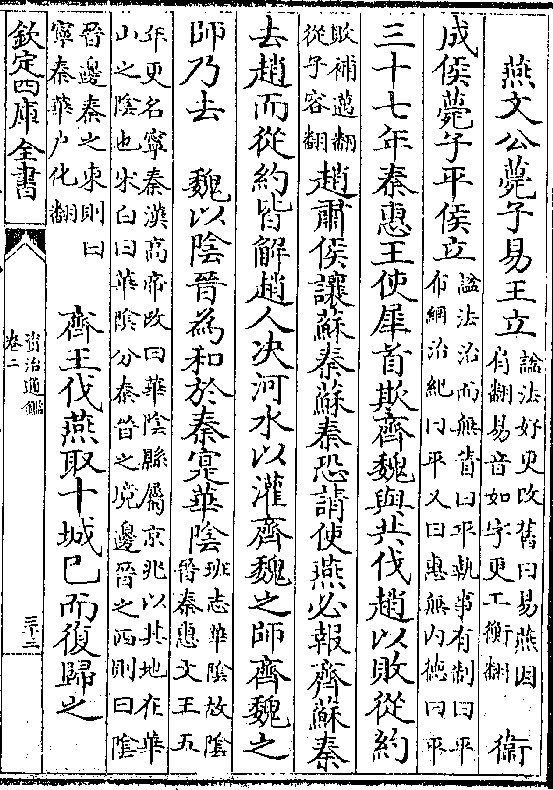 燕文公薨子易王立諡法好更改舊曰易燕因肩翻易音如字更工衡翻 衞
成侯薨子平侯立諡法治而無眚曰平執事有制曰平布綱治紀曰平又曰惠無内徳曰平
三十七年秦惠王使犀首欺齊魏與共伐趙以敗從約
敗補邁翻從子容翻趙肅侯讓蘇秦蘇秦恐請使燕必報齊蘇秦
去趙而從約皆解趙人决河水以灌齊魏之師齊魏之
師乃去 魏以陰晉為和於秦寔華陰班志華陰故陰晉秦惠文王五
年更名寧秦漢高帝改曰華陰縣屬京兆以其地在華山之陰也宋白曰華陰分秦晉之境邊晉之西則曰陰
晉邊秦之東則曰寧秦華户化翻 齊王伐燕取十城已而復歸之
欽定四庫全書
資治通鑑
卷二
三十三